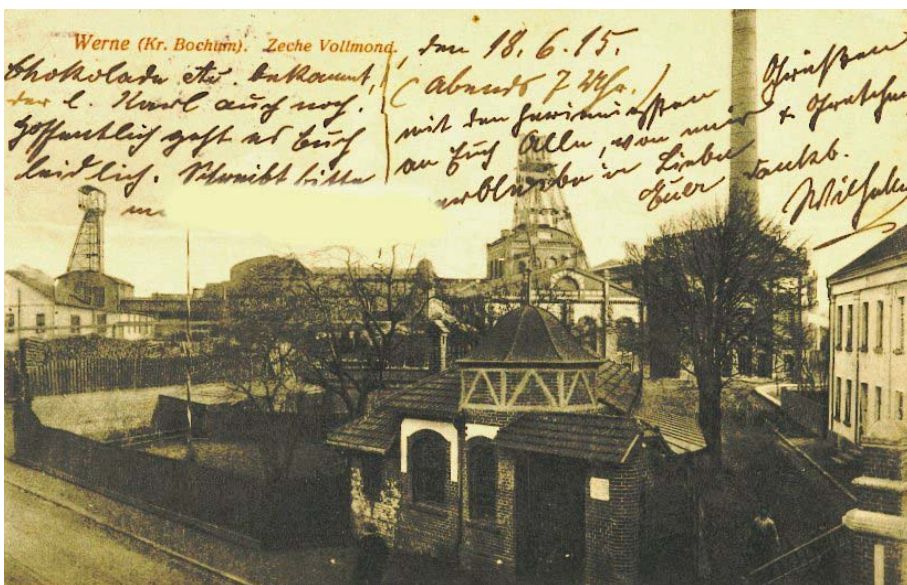 Werne (Kr. Bochum). Zeche Vollmond.
Chokolade bekommt,
der l. Karl auch noch.
Hoffentlich geht es Euch
leidlich. Schreibt bitte
, den 18.6.15.
(Abends 7 Uhr.)
mit den herzinnigsten Grüßen
an Euch Alle, von mir & Gretchen
verbleibe in Liebe
Euer dankb.
Wilhelm